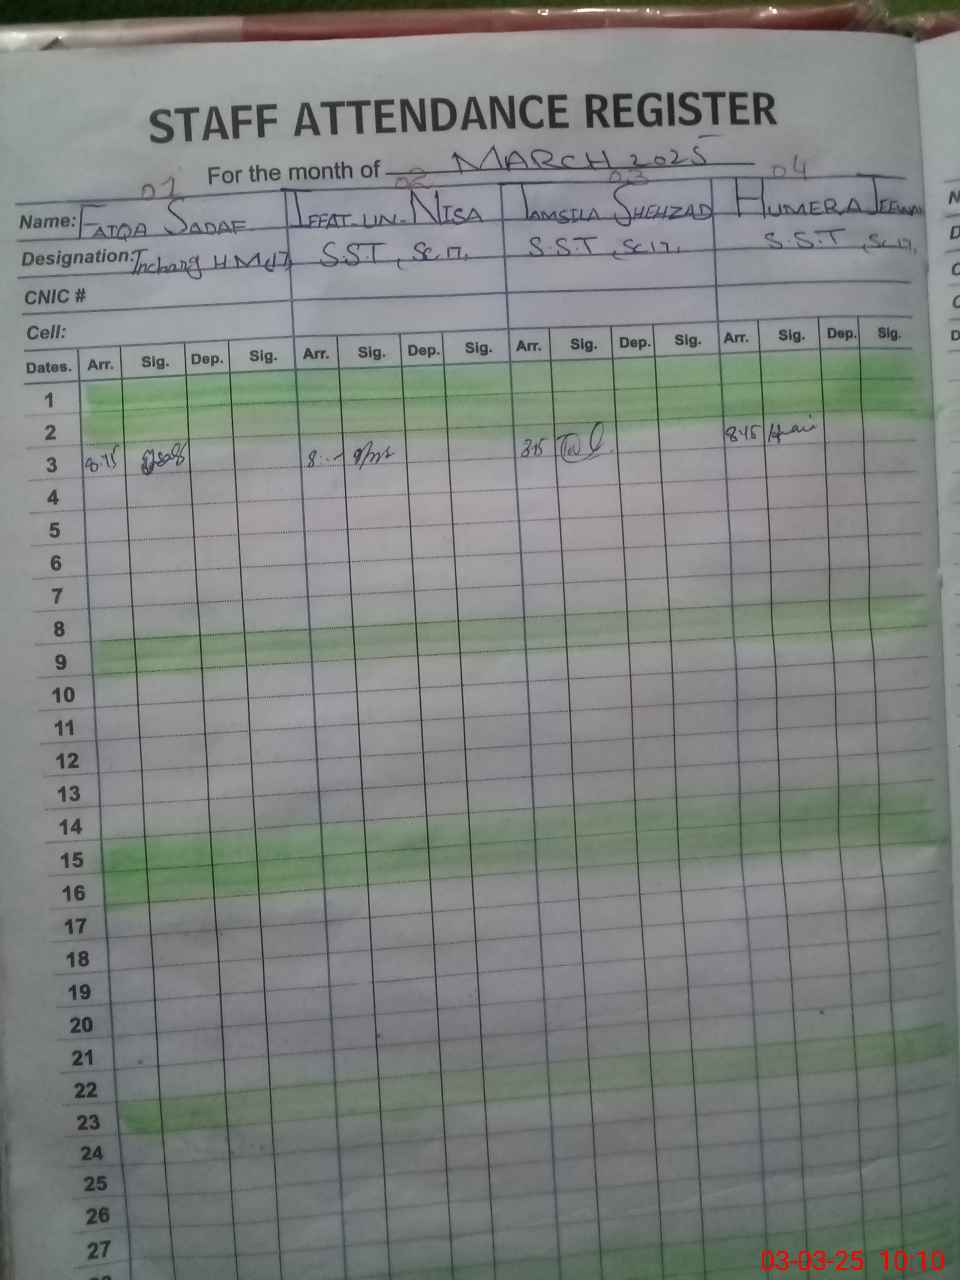 STAFF ATTENDANCE REGISTER
For the month of MARCH 2025
01 02 03 04
Name: FAIQA SADAF IFFAT-UN-NISA TAMSILA SHEHZAD HUMERA
Designation: Incharg H.M S.S.T, Sc.17, S.S.T, Sc.17, S.S.T, Sc.17,
CNIC #
Cell:
Dates. Arr. Sig. Dep. Sig. Arr. Sig. Dep. Sig. Arr. Sig. Dep. Sig. Arr. Sig. Dep. Sig.
1
2
3 8:15 8:45
4
5
6
7
8
9
10
11
12
13
14
15
16
17
18
19
20
21
22
23
24
25
26
27
03-03-25 10:10